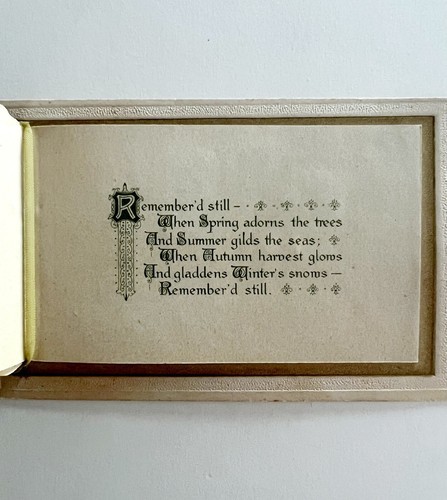 Remember'd still –
When Spring adorns the trees
And Summer gilds the seas;
When Autumn harvest glows
And gladdens Winter's snows –
Remember'd still.